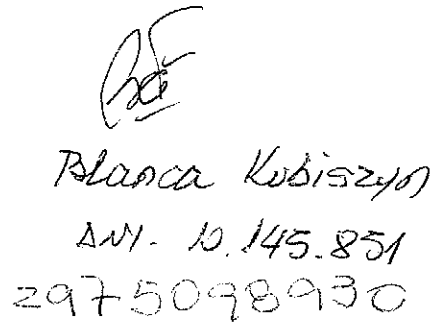 Blanca Kubiszyn
DNI. 10.145.851
2975098930